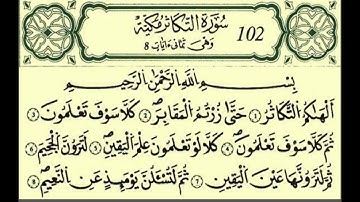 سُورَةُ التَّكَاثُرِ مَكِّيَّة 102
وَهِيَ ثَمَانِي ءَايَاتٍ 8
بِسْمِ اللَّهِ الرَّحْمَٰنِ الرَّحِيمِ
أَلْهَاكُمُ التَّكَاثُرُ ① حَتَّى زُرْتُمُ الْمَقَابِرَ ② كَلَّا سَوْفَ تَعْلَمُونَ ③
ثُمَّ كَلَّا سَوْفَ تَعْلَمُونَ ④ كَلَّا لَوْ تَعْلَمُونَ عِلْمَ الْيَقِينِ ⑤ لَتَرَوُنَّ الْجَحِيمَ ⑥
ثُمَّ لَتَرَوُنَّهَا عَيْنَ الْيَقِينِ ⑦ ثُمَّ لَتُسْئَلُنَّ يَوْمَئِذٍ عَنِ النَّعِيمِ ⑧